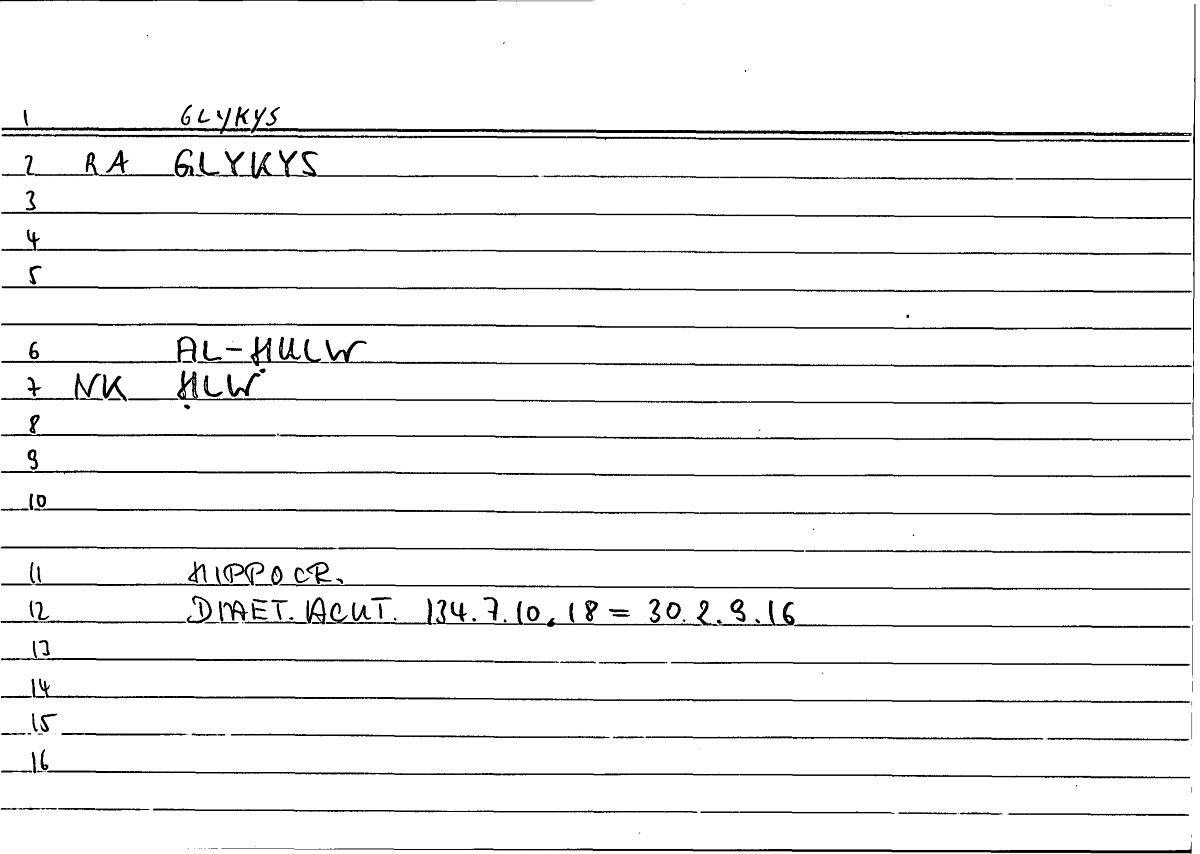 1 GLYKYS
2 RA GLYKYS
3
4
5
6 AL-ḤULW
7 NK ḤLW
8
9
10
11 HIPPOCR.
12 DIAET. ACUT. 134.7.10.18 = 30.2.9.16
13
14
15
16